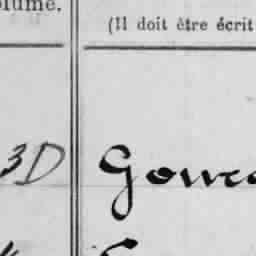 olume.
(Il doit être écrit
3D Gour